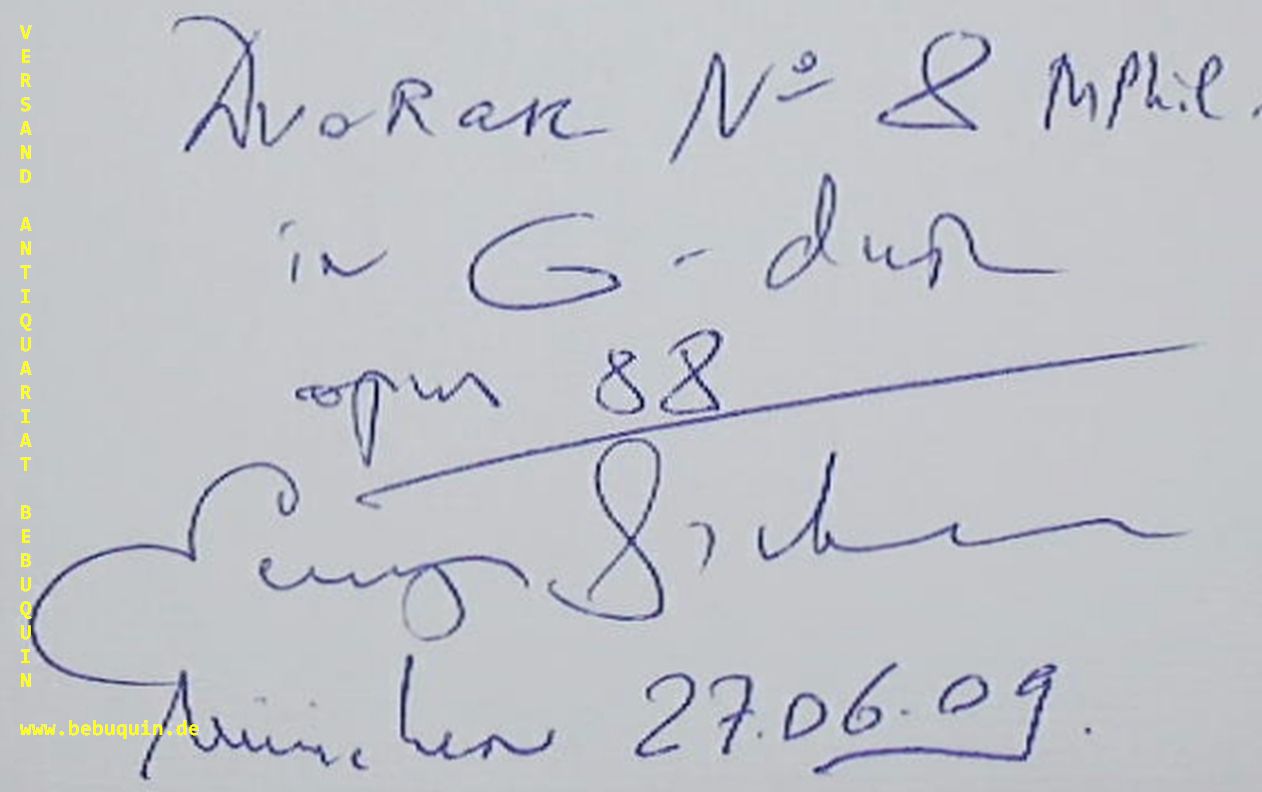 Dvorak Nº 8 MPhil.
in G-dur
opus 88
München 27.06.09.
VERSAND ANTIQUARIAT BEBUQUIN
www.bebuquin.de